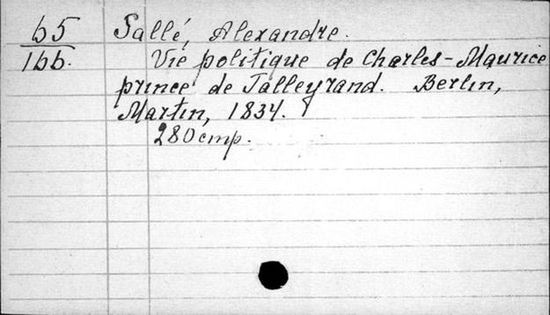 65 Sallé, Alexandre.
166. Vie politique de Charles-Maurice
prince de Talleyrand. Berlin,
Martin, 1834.
280 стр.